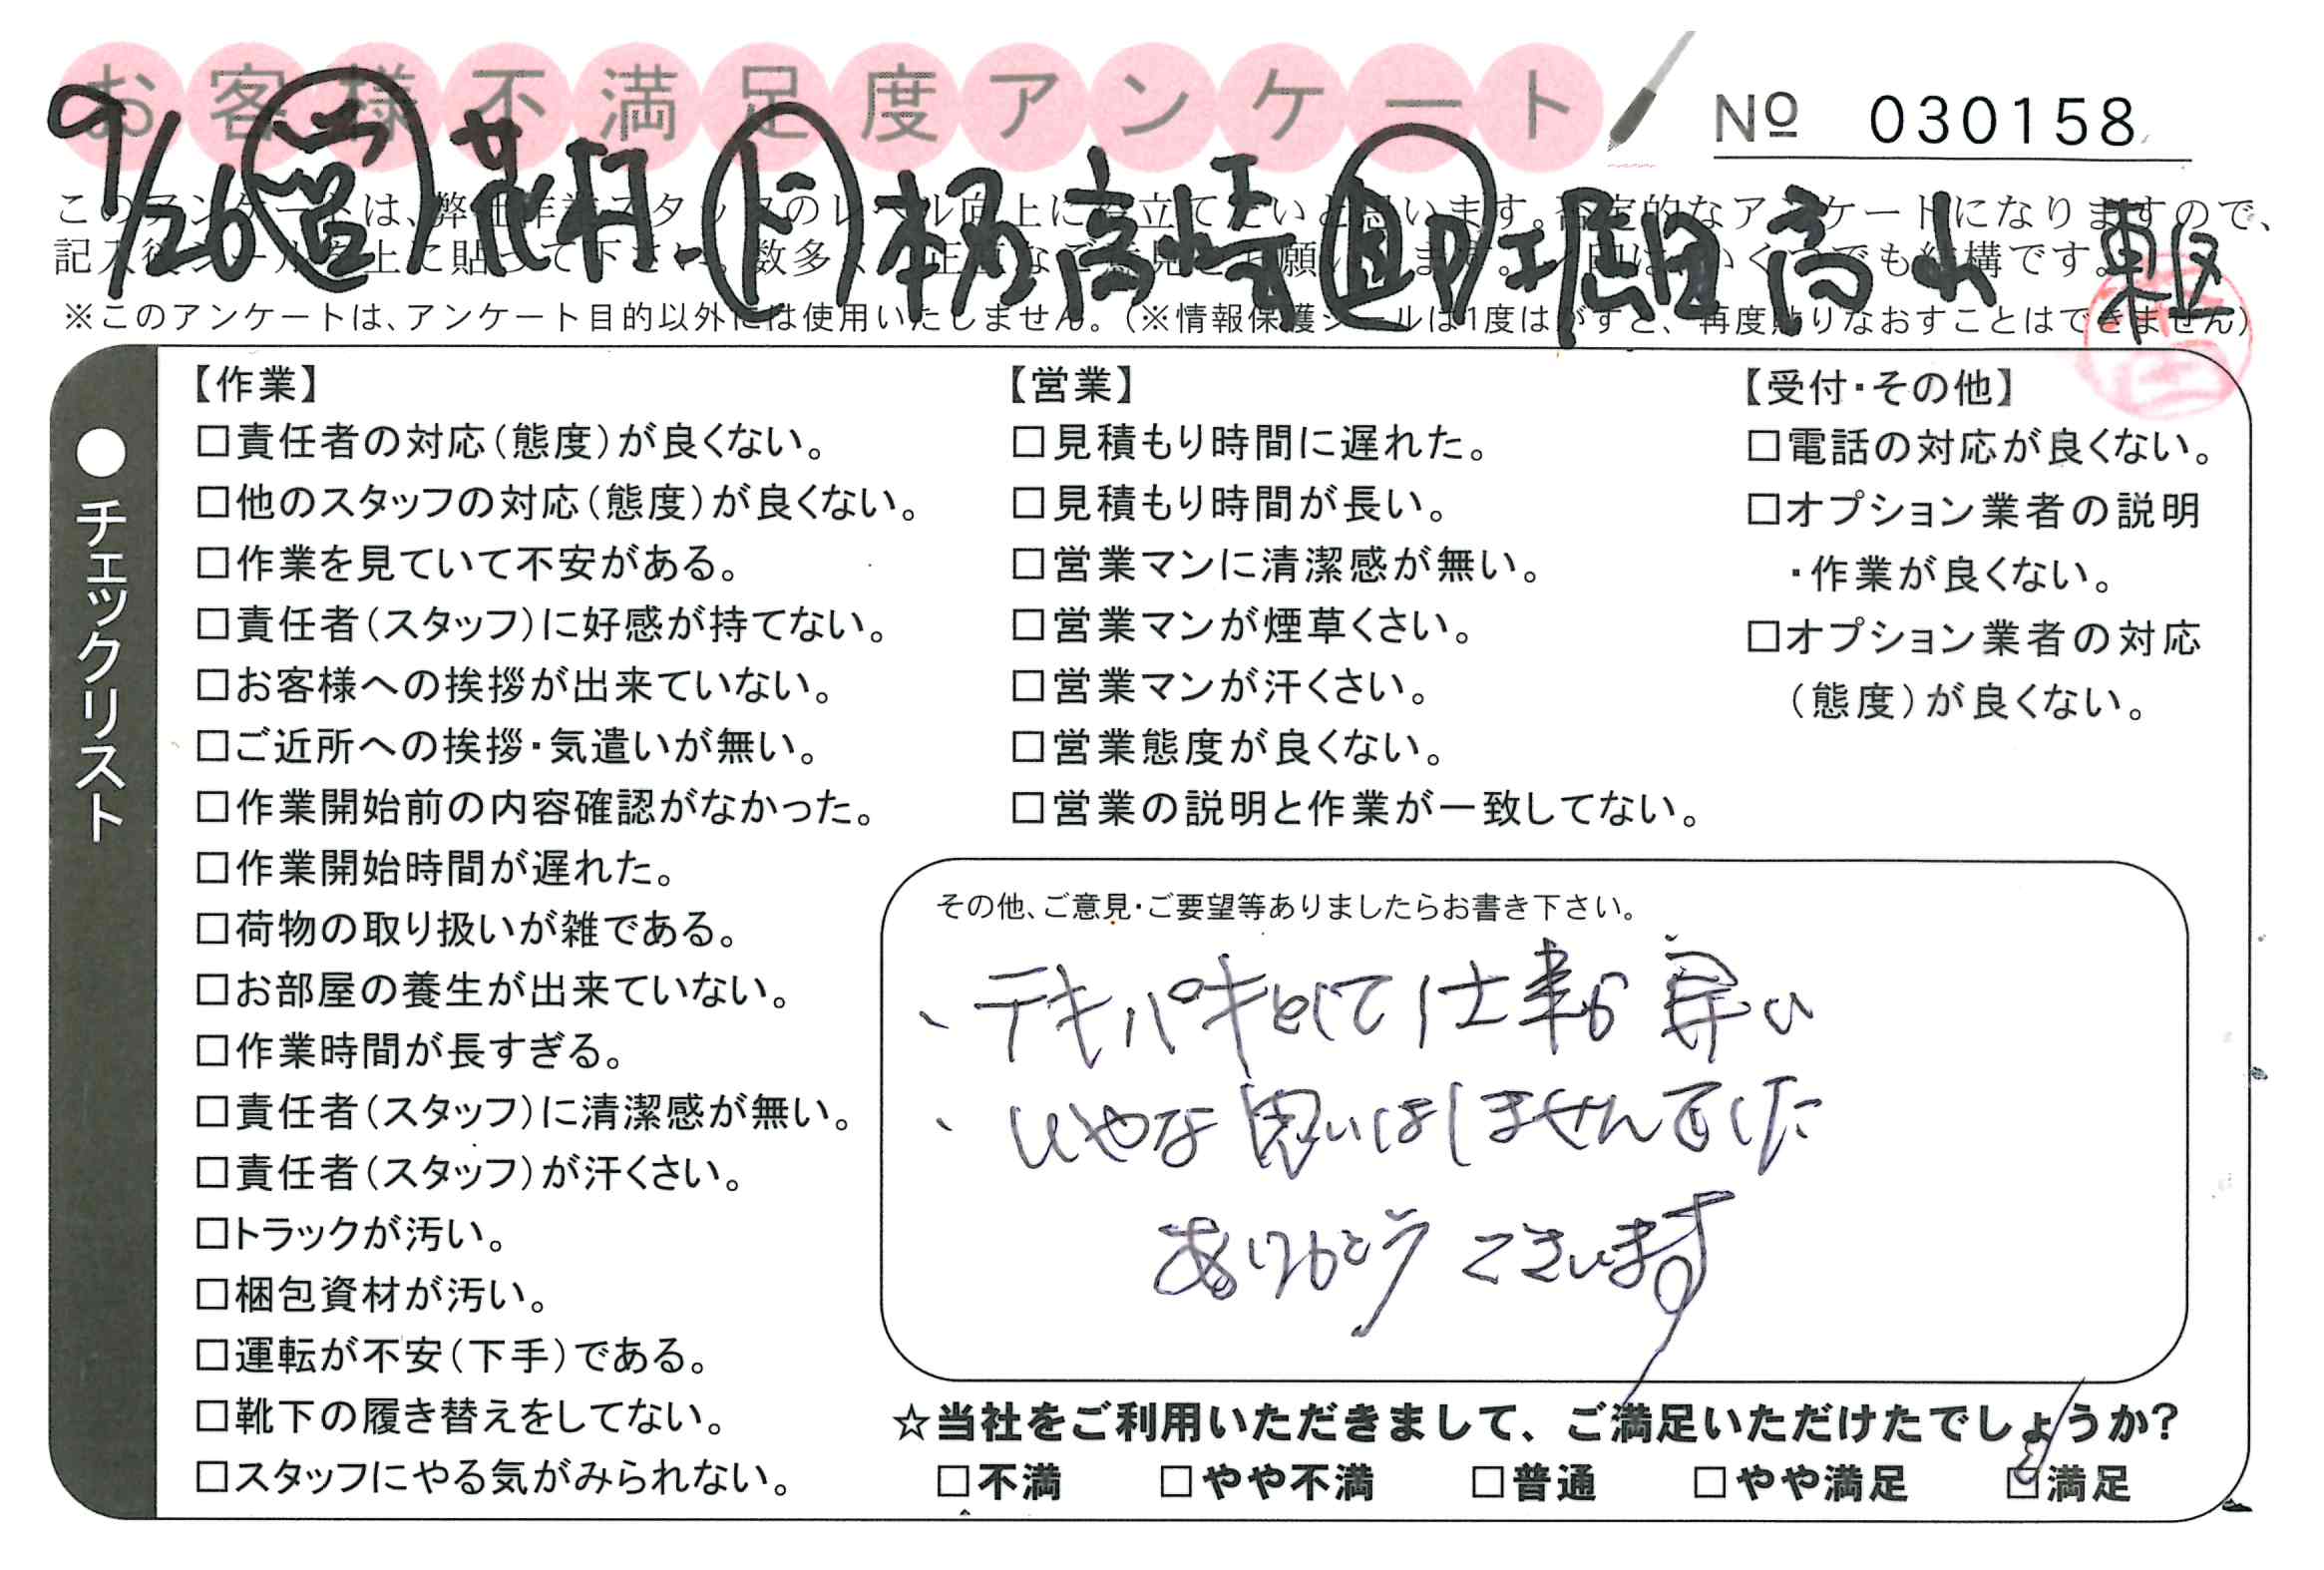 お客様不満足度アンケート
№ 030158
9/26 営 茂村 ト 本多 高崎 助 堀田 高山 東区
このアンケートは、弊社作業スタッフのレベル向上に役立てたいと思います。否定的なアンケートになりますので、
記入後シールを上に貼って下さい。数多くの正直なご意見をお願いします。
※このアンケートは、アンケート目的以外には使用いたしません。(※情報保護シールは1度はがすと、再度貼りなおすことはできません)
●チェックリスト
【作業】
□責任者の対応(態度)が良くない。
□他のスタッフの対応(態度)が良くない。
□作業を見ていて不安がある。
□責任者(スタッフ)に好感が持てない。
□お客様への挨拶が出来ていない。
□ご近所への挨拶・気遣いが無い。
□作業開始前の内容確認がなかった。
□作業開始時間が遅れた。
□荷物の取り扱いが雑である。
□お部屋の養生が出来ていない。
□作業時間が長すぎる。
□責任者(スタッフ)に清潔感が無い。
□責任者(スタッフ)が汗くさい。
□トラックが汚い。
□梱包資材が汚い。
□運転が不安(下手)である。
□靴下の履き替えをしてない。
□スタッフにやる気がみられない。
【営業】
□見積もり時間に遅れた。
□見積もり時間が長い。
□営業マンに清潔感が無い。
□営業マンが煙草くさい。
□営業マンが汗くさい。
□営業態度が良くない。
□営業の説明と作業が一致してない。
【受付・その他】
□電話の対応が良くない。
□オプション業者の説明
・作業が良くない。
□オプション業者の対応
(態度)が良くない。
その他、ご意見・ご要望等ありましたらお書き下さい。
、テキパキとして仕事が早い
、いやな思いはしませんでした
ありがとうございます
☆当社をご利用いただきまして、ご満足いただけたでしょうか?
□不満 □やや不満 □普通 □やや満足 ☑満足